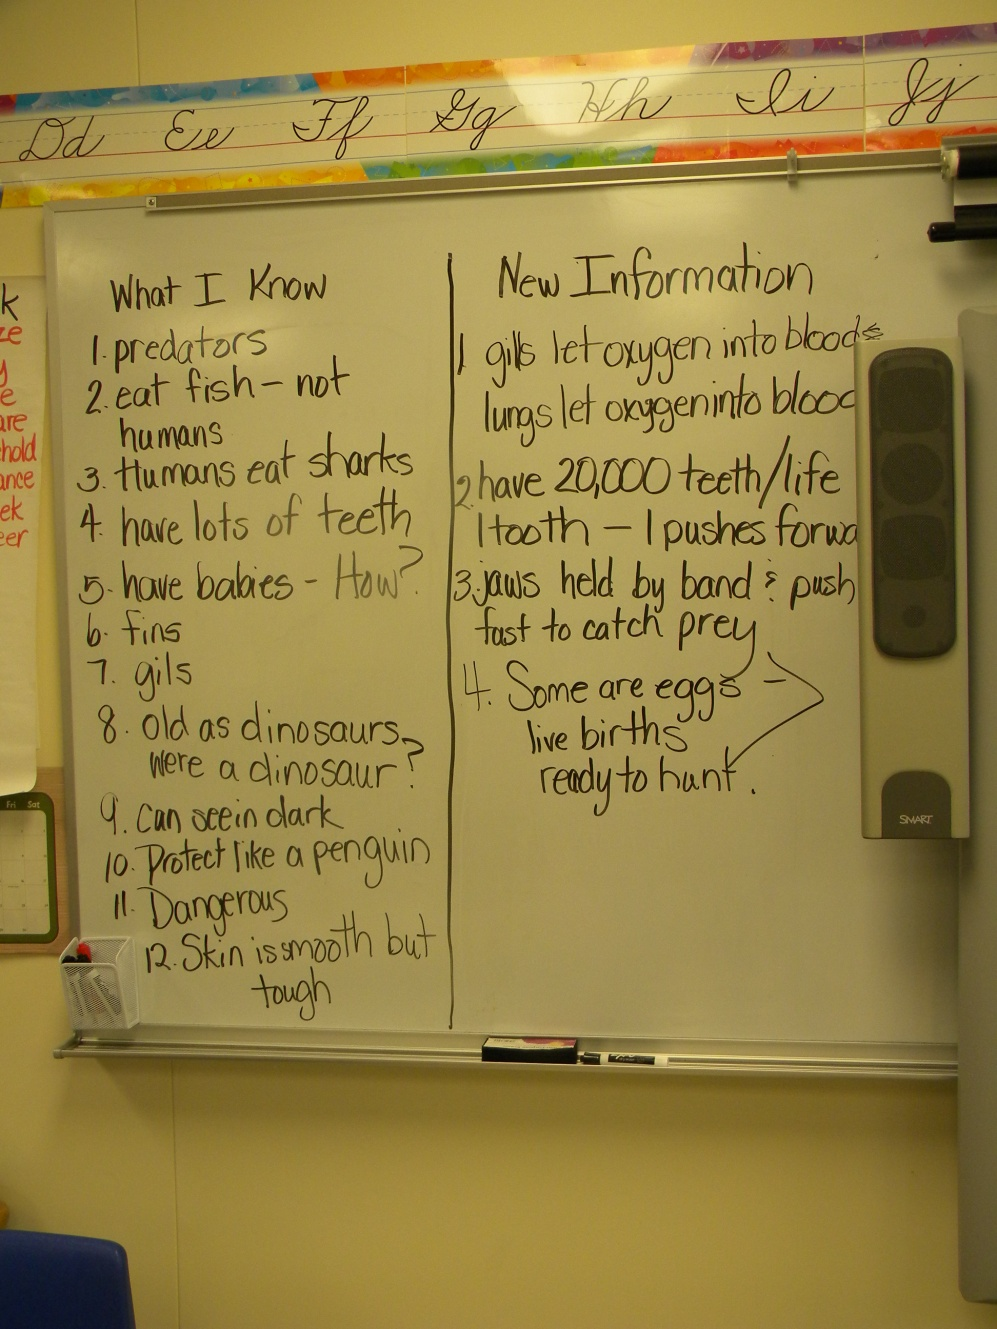 Dd Ee Ff Gg Hh Ii Jj
What I Know
1. predators
2. eat fish – not
humans
3. Humans eat sharks
4. have lots of teeth
5. have babies - How?
6. fins
7. gils
8. old as dinosaurs
were a dinosaur?
9. can see in dark
10. Protect like a penguin
11. Dangerous
12. Skin is smooth but
tough
New Information
1 gills let oxygen into blood
lungs let oxygen into blood
2. have 20,000 teeth/life
1 tooth – 1 pushes forwa
3. jaws held by band & push
fast to catch prey
4. Some are eggs –
live births
ready to hunt.
k
ze
y
e
are
hold
ance
ek
eer
Fri Sat
SMART